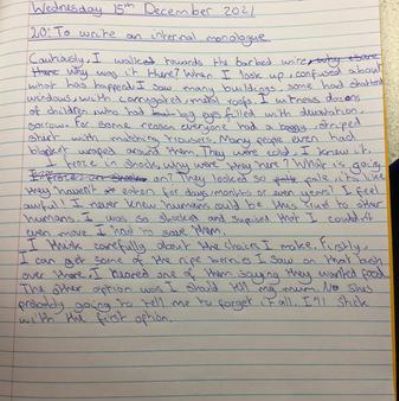 Wednesday 15th December 2021
LO: To write an internal monologue
Cautiously, I walked towards the barbed wire, why
there why was it there? When I look up, confused about
what has happened I saw many buildings, some had shatted
windows, with corregated, metal roofs. I witness dozens
of children who had big eyes filled with
sorrow. For some reason everyone had a baggy, striped
shirt with matching trousers. Many peope even had
blanket wrapped around them. They were cold, I knew it.
I froze in shock, why were they here? What is going
on? They looked so pale, it's like
they haven't eaten for days, months or even years! I feel
awful! I never knew humans could be this cruel to other
humans. I was so shocked and suprised that I couldn't
even move. I had to save them.
I think carefully about the choices I make. Firstly,
I can get some of the ripe berries I saw on that bush
over there. I heared one of them saying they wanted food.
The other option was I should tell my mum. No she's
probably going to tell me to forget it all. I'll stick
with the first option.